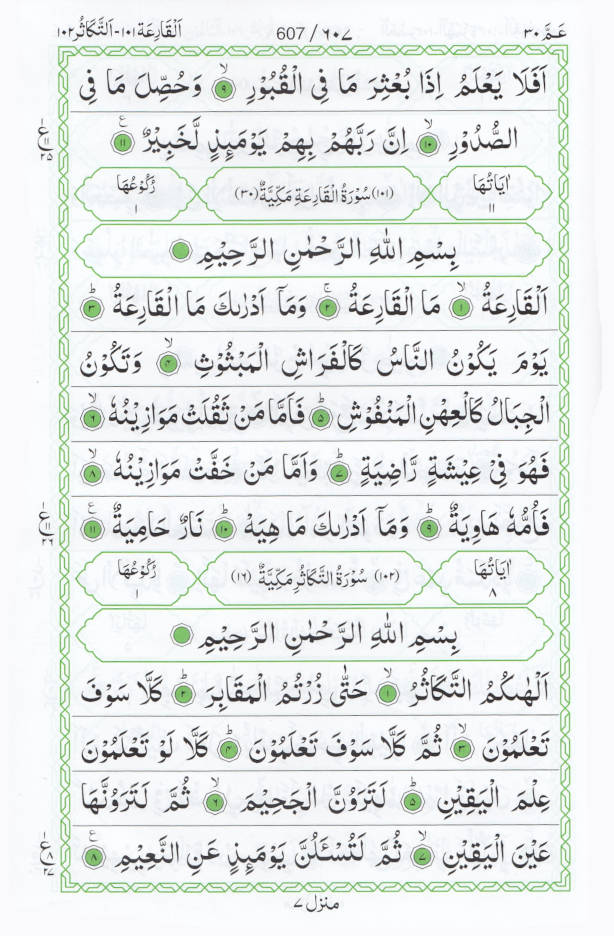 عَمَّ ٣٠ 607 / ٦٠٧ اَلْقَارِعَة ١٠١-اَلتَّكَاثُر ١٠٢
اَفَلَا يَعْلَمُ اِذَا بُعْثِرَ مَا فِى الْقُبُوْرِ ۙ‏ ٩ وَحُصِّلَ مَا فِى
الصُّدُوْرِ ۙ‏ ١٠ اِنَّ رَبَّهُمْ بِهِمْ يَوْمَىِٕذٍ لَّخَبِيْرٌ ١١
اٰيَاتُهَا ١١ (١٠١) سُوْرَةُ الْقَارِعَةِ مَكِّيَّةٌ (٣٠) رُكُوْعُهَا ١
بِسْمِ اللّٰهِ الرَّحْمٰنِ الرَّحِيْمِ
اَلْقَارِعَةُ ۙ‏ ١ مَا الْقَارِعَةُ ۚ‏ ٢ وَمَاۤ اَدْرٰىكَ مَا الْقَارِعَةُ ؕ‏ ٣
يَوْمَ يَكُوْنُ النَّاسُ كَالْفَرَاشِ الْمَبْثُوْثِ ۙ‏ ٤ وَتَكُوْنُ
الْجِبَالُ كَالْعِهْنِ الْمَنْفُوْشِ ؕ‏ ٥ فَاَمَّا مَنْ ثَقُلَتْ مَوَازِيْنُهٗ ۙ‏ ٦
فَهُوَ فِىْ عِيْشَةٍ رَّاضِيَةٍ ؕ‏ ٧ وَاَمَّا مَنْ خَفَّتْ مَوَازِيْنُهٗ ۙ‏ ٨
فَاُمُّهٗ هَاوِيَةٌ ؕ‏ ٩ وَمَاۤ اَدْرٰىكَ مَا هِيَهْ ؕ‏ ١٠ نَارٌ حَامِيَةٌ ١١
اٰيَاتُهَا ٨ (١٠٢) سُوْرَةُ التَّكَاثُرِ مَكِّيَّةٌ (١٦) رُكُوْعُهَا ١
بِسْمِ اللّٰهِ الرَّحْمٰنِ الرَّحِيْمِ
اَلْهٰىكُمُ التَّكَاثُرُ ۙ‏ ١ حَتّٰى زُرْتُمُ الْمَقَابِرَ ؕ‏ ٢ كَلَّا سَوْفَ
تَعْلَمُوْنَ ۙ‏ ٣ ثُمَّ كَلَّا سَوْفَ تَعْلَمُوْنَ ؕ‏ ٤ كَلَّا لَوْ تَعْلَمُوْنَ
عِلْمَ الْيَقِيْنِ ؕ‏ ٥ لَتَرَوُنَّ الْجَحِيْمَ ۙ‏ ٦ ثُمَّ لَتَرَوُنَّهَا
عَيْنَ الْيَقِيْنِ ۙ‏ ٧ ثُمَّ لَتُسْـَٔلُنَّ يَوْمَىِٕذٍ عَنِ النَّعِيْمِ ٨
منزل ٧